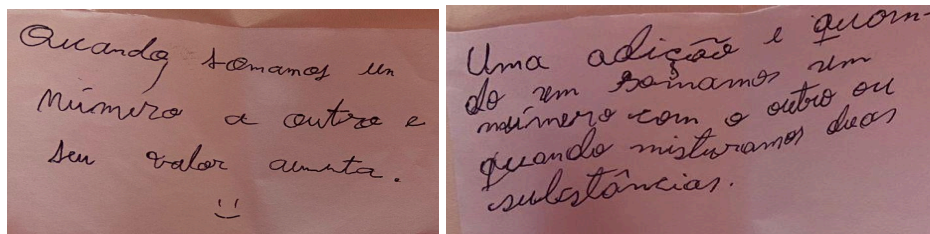 Quando somamos um
número a outro e
seu valor aumenta.
Uma adição e quan-
do um somamos um
número com o outro ou
quando misturamos duas
substâncias.